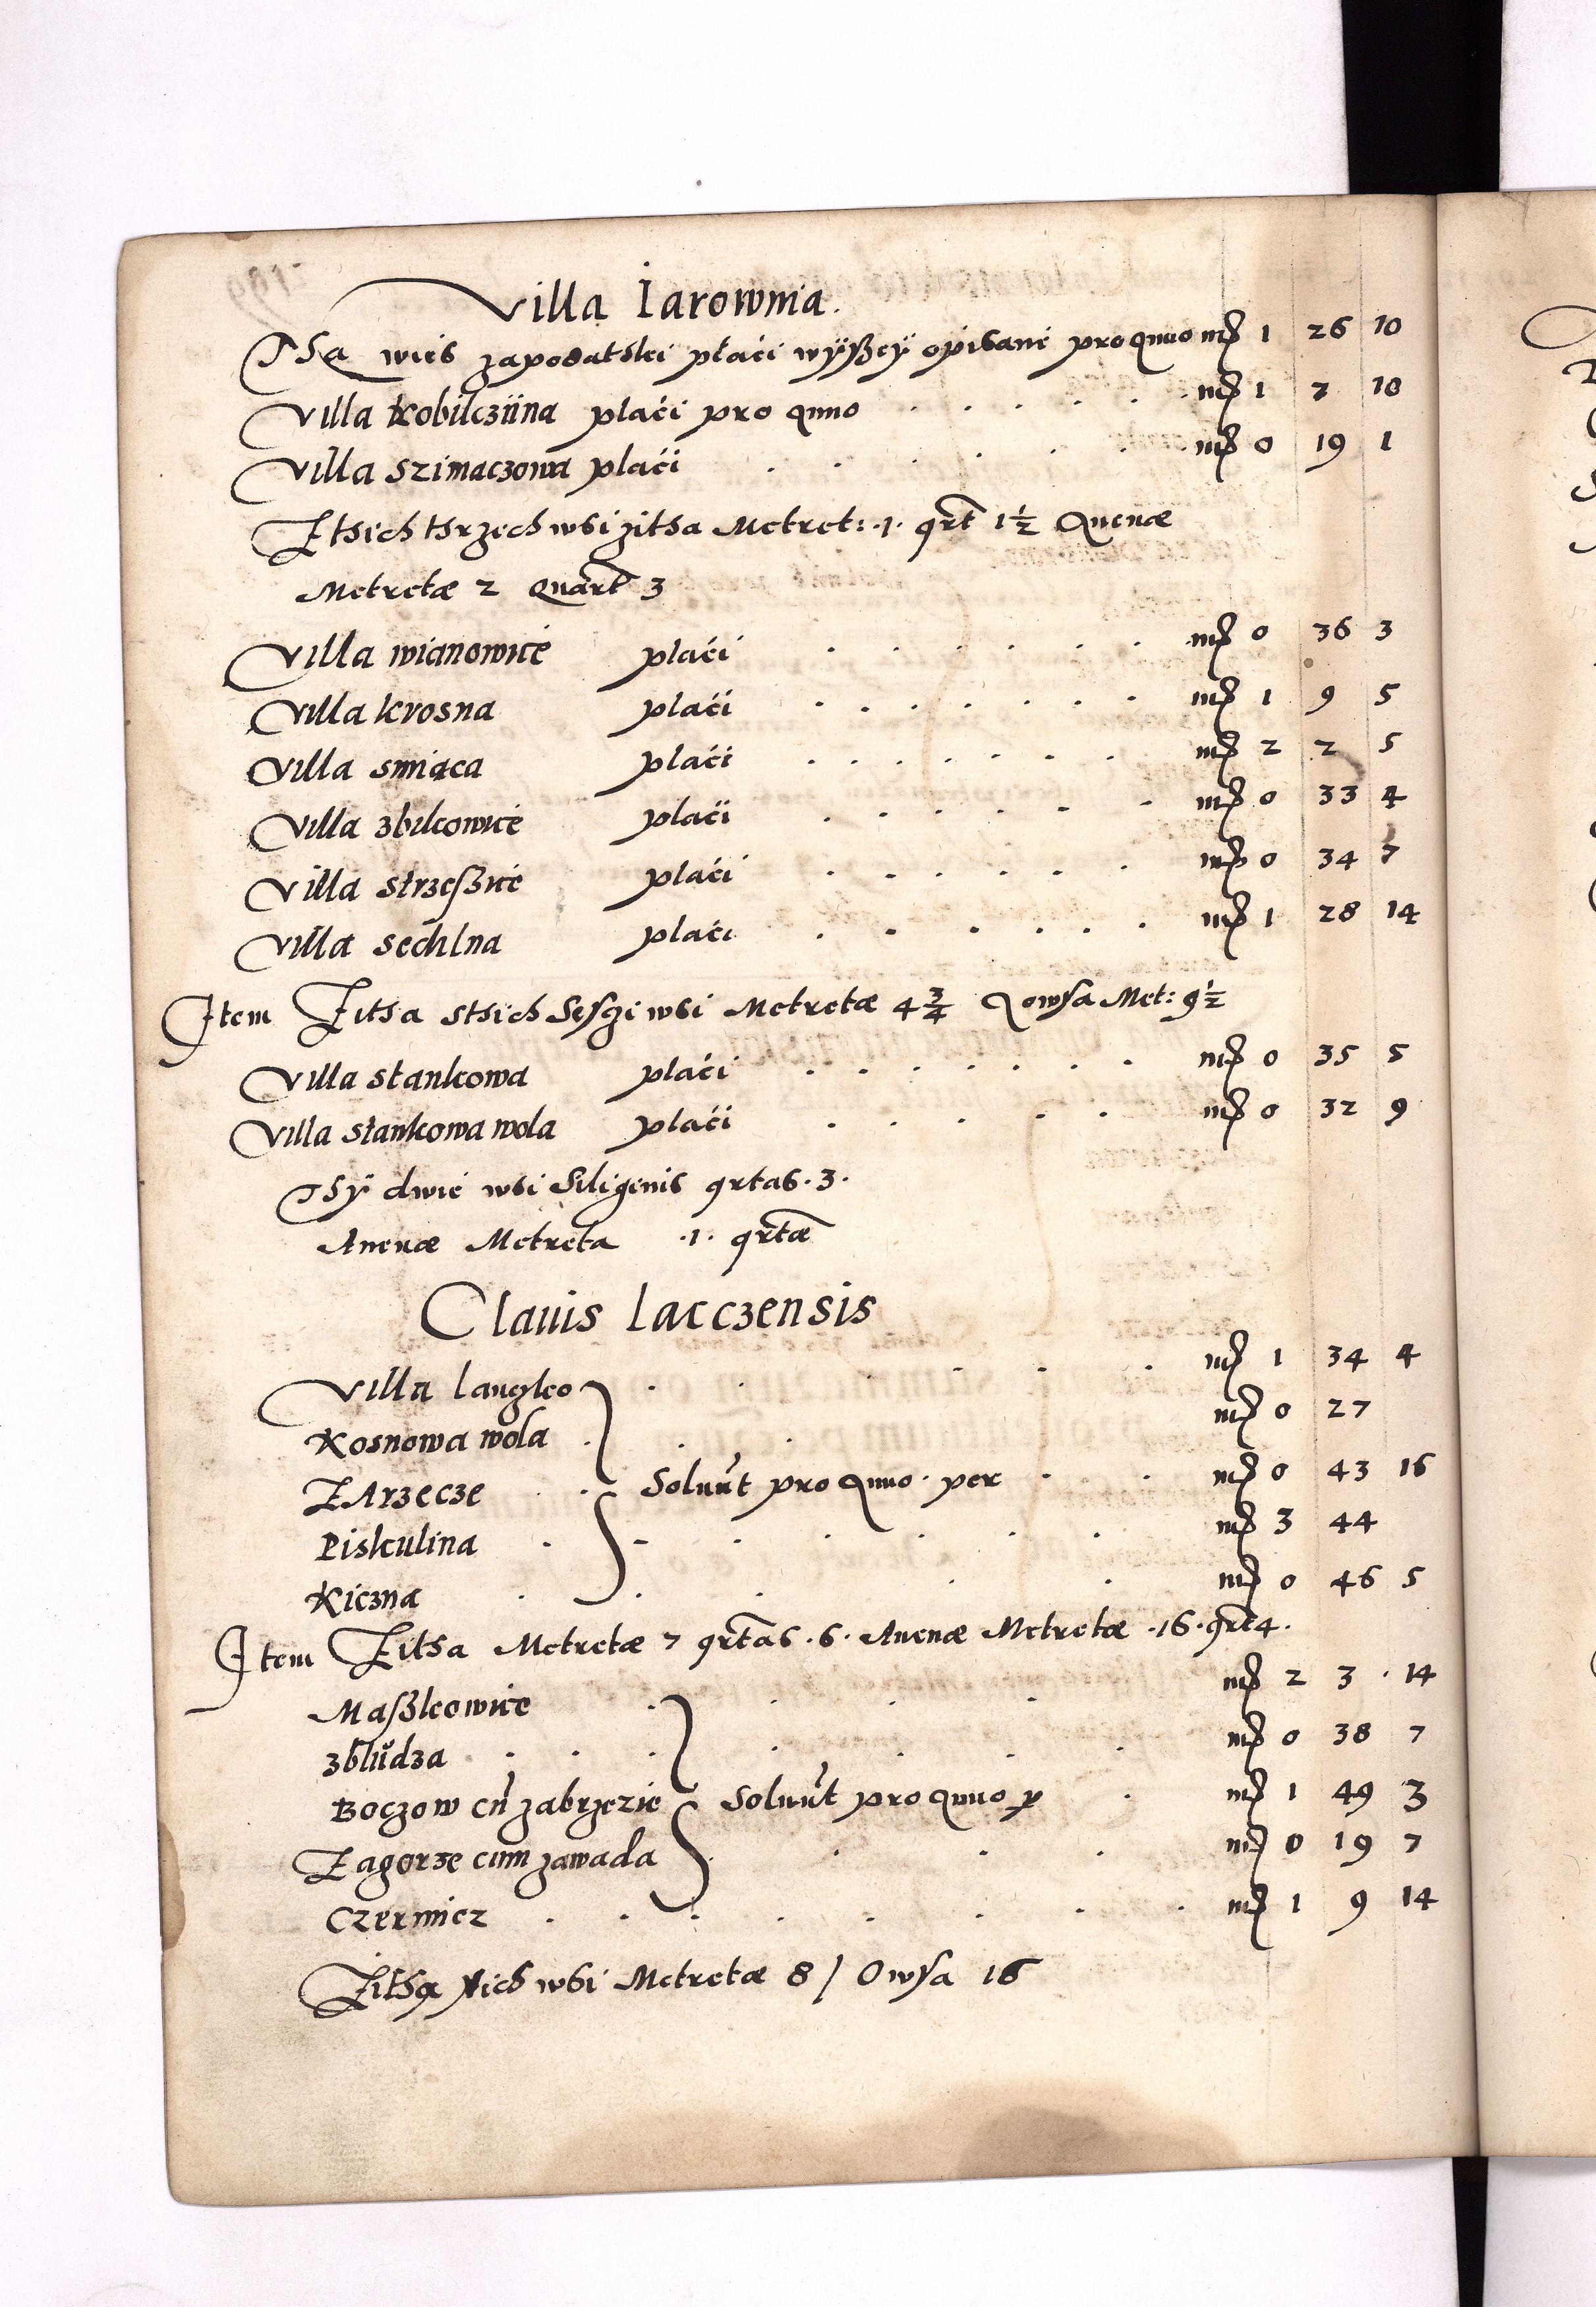 Villa Jarownia.
Tha wies zapodathki płaći wÿßeÿ opisane pro anno mρ 1 26 10
Villa Kobilcziina płaći pro anno mρ 1 2 10
Villa Szimaczowa płaći mρ 0 19 1
Zthich thrzech wsi zitha Metret: .1. qrt 1½ Auenæ
Metretæ 2 Quart 3
Villa wianowice płaći mρ 0 36 3
Villa krosna płaći mρ 1 9 5
Villa smiaca płaći mρ 2 2 5
Villa zbikowice płaći mρ 0 33 4
Villa strzeßice płaći mρ 0 34 7
Villa sechlna płaći mρ 1 28 14
Item Zitha sthich Sesczi wsi Metretæ 4¾ Owsa Met: 9½
Villa stankowa płaći mρ 0 35 5
Villa stankowa wola płaći mρ 0 32 9
Thÿ dwie wsi Siligenis qrtas .3.
Auenæ Metreta .1. qrtæ
Clauis lacczensis
Villa langko mρ 1 34 4
Kosnowa wola mρ 0 27
ZArzecze Soluut pro Anno per mρ 0 43 16
Piskulina mρ 3 44
Kiczna mρ 0 46 5
Item Zitha Metretæ 7 qrtas .6. Auenæ Metretæ .16. qrt 4.
Maßkowice mρ 2 3 14
zbludza mρ 0 38 7
Boczow cu zabrzezie Soluut pro Anno p mρ 1 49 3
Zagorze cum zawada mρ 0 19 7
Czerniecz mρ 1 9 14
Zitha wsi Metretæ 8 / Owsa 16